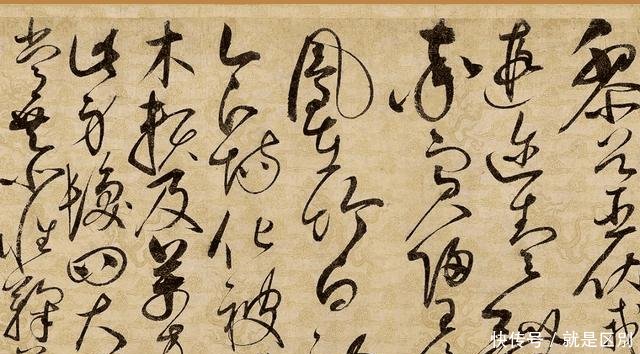 黎首臣伏戎
遐邇壹體
率賓歸王
鳳在竹白
食場化被
木賴及萬方
此身髮四大
常恭惟鞠
快传号/就是区别